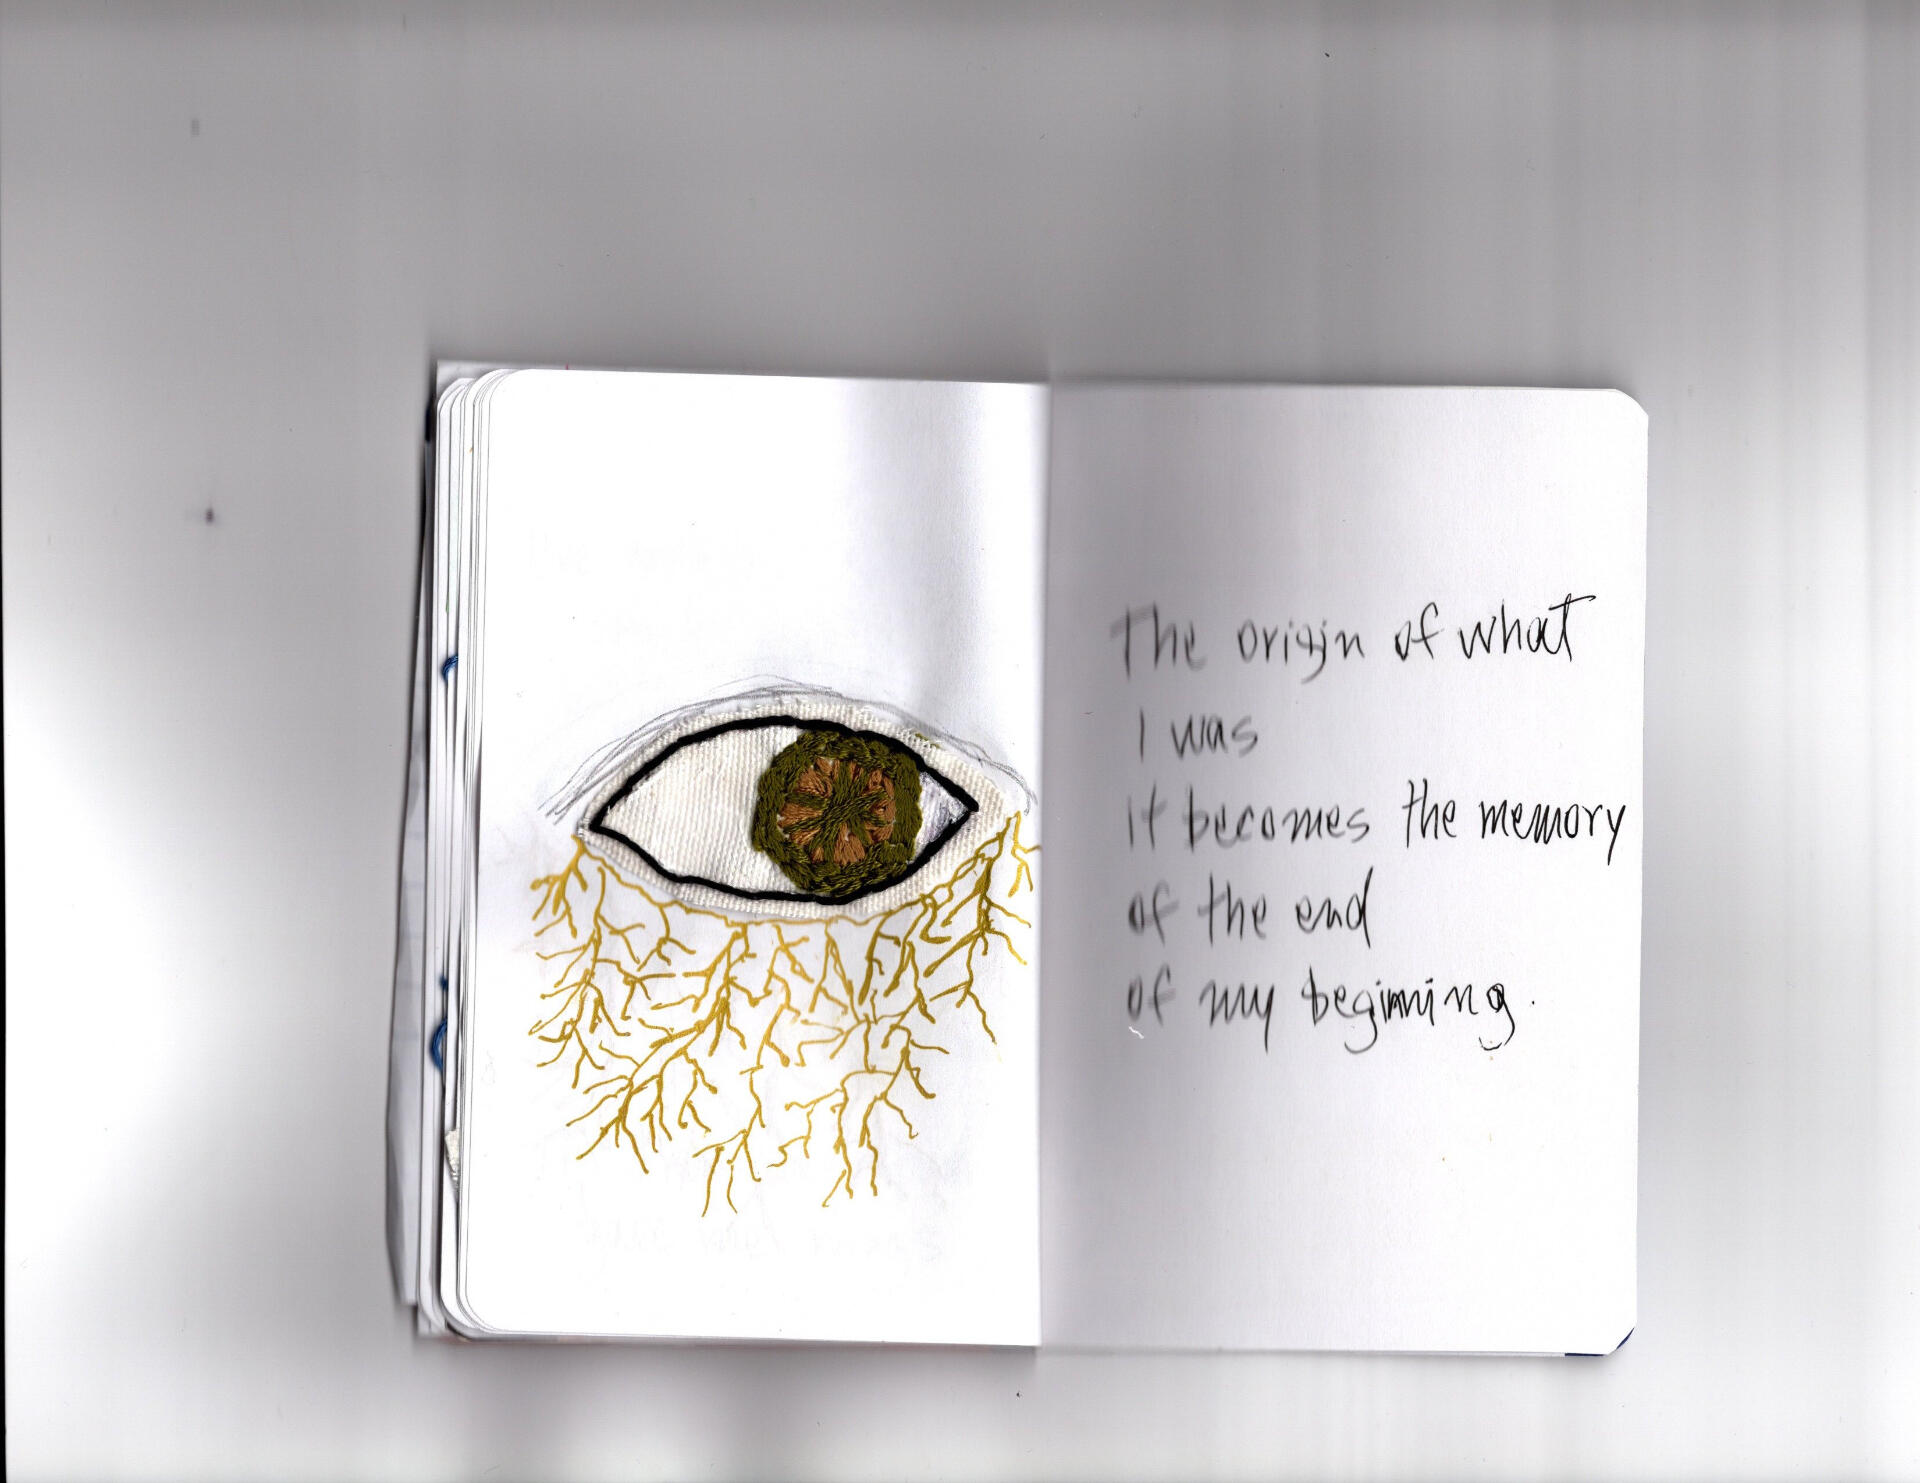 The origin of what
I was
it becomes the memory
of the end
of my beginning.